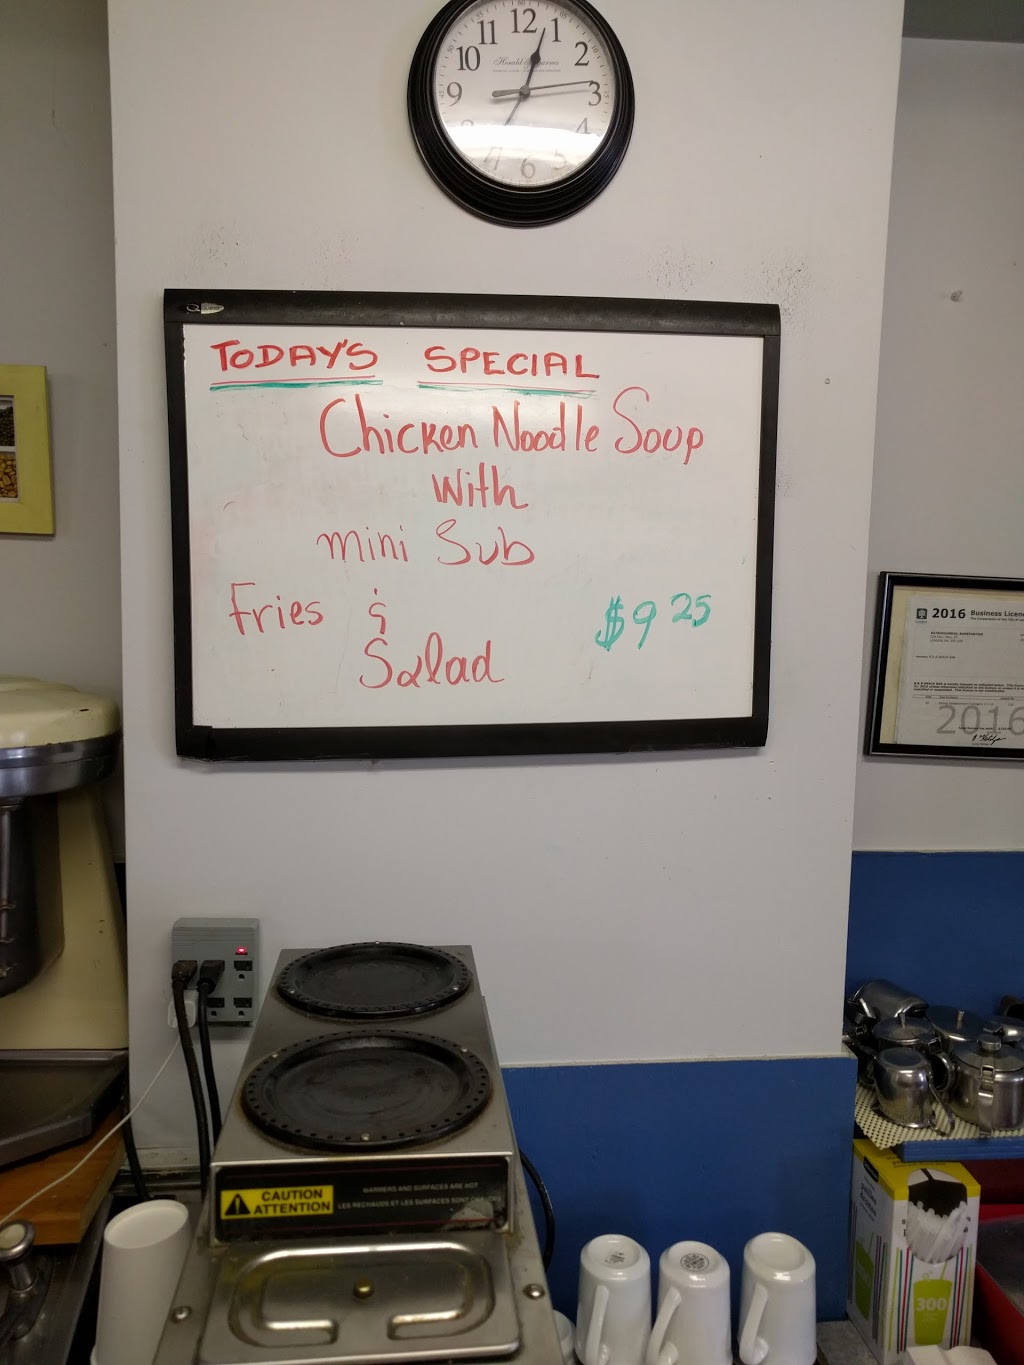 12
1
2
3
4
5
6
7
8
9
10
11
TODAY'S SPECIAL
Chicken Noodle Soup
With
mini Sub
Fries &
Salad
$9 25
2016 Business Licen
2016
CAUTION
ATTENTION
WARMERS AND SURFACES ARE HOT
LES RECHAUDS ET LES SURFACES SONT
300